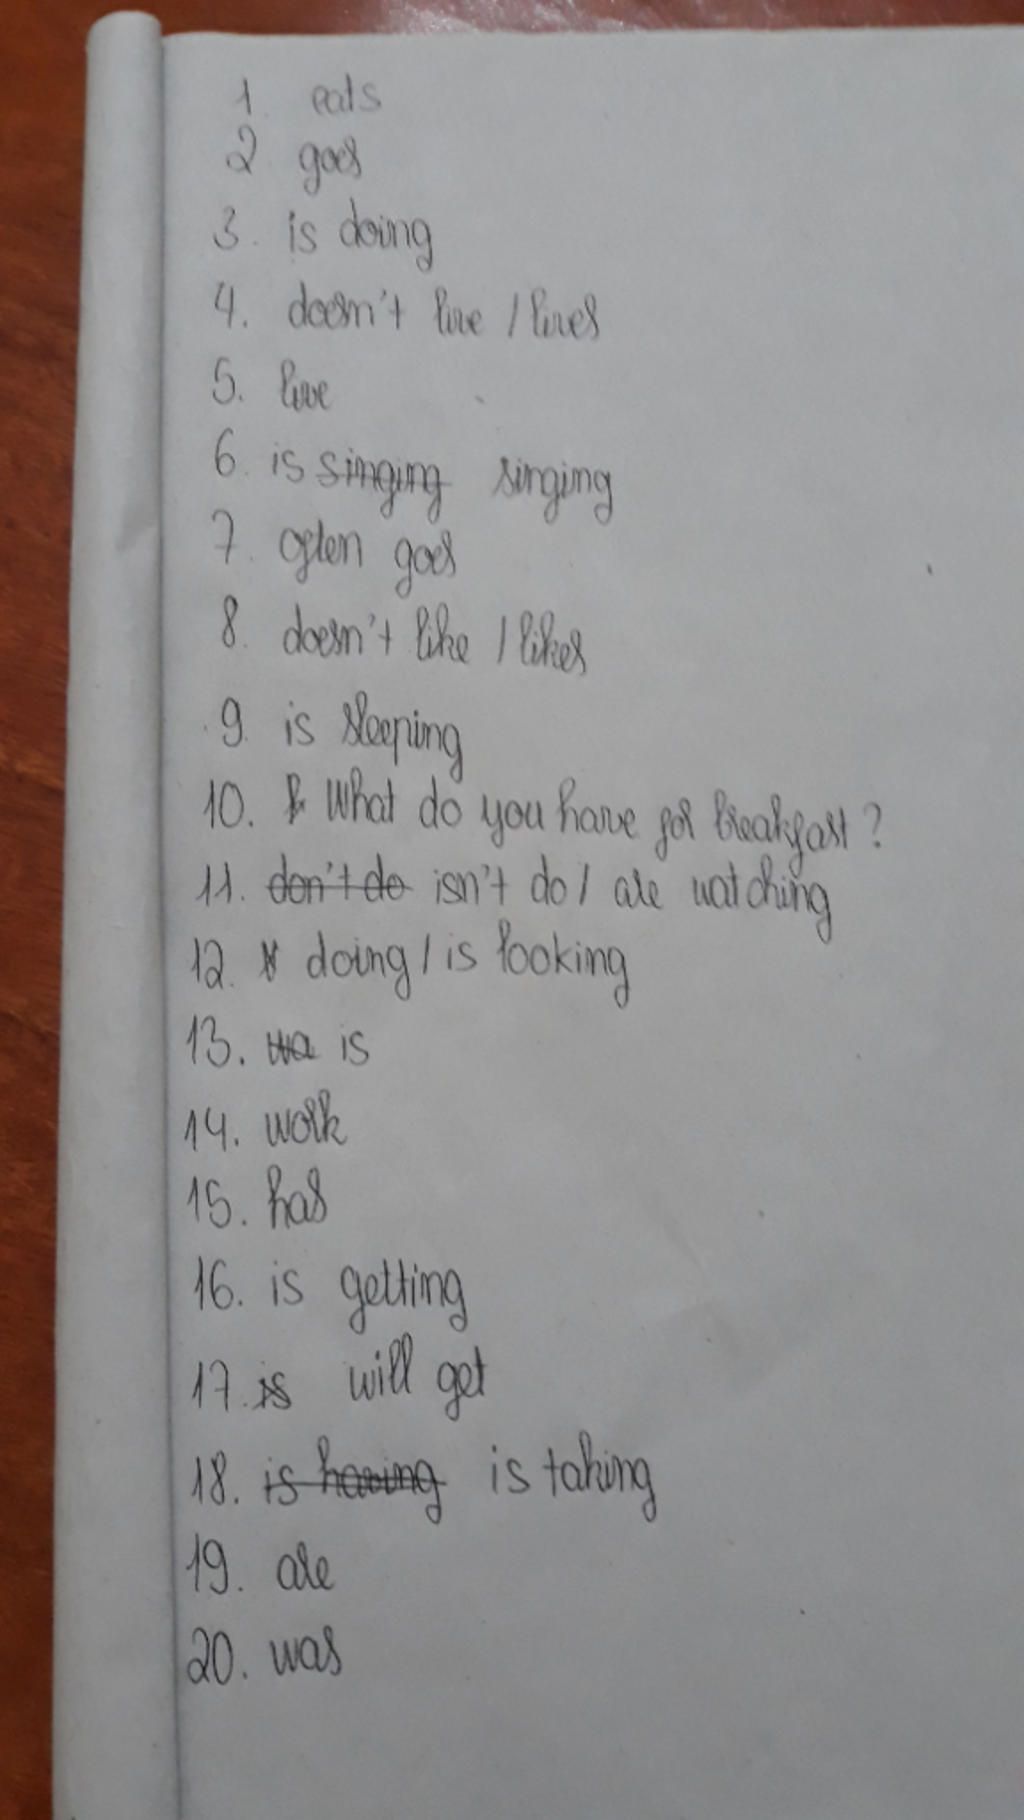 1. eats
2 goes
3. is doing
4. doesn't live / lives
5. live
6. is singing singing
7. often goes
8. doesn't like / likes
9. is sleeping
10. What do you have for breakfast?
11. don't do isn't do / are watching
12. doing / is looking
13. wa is
14. work
15. has
16. is getting
17. is will get
18. is having is taking
19. are
20. was